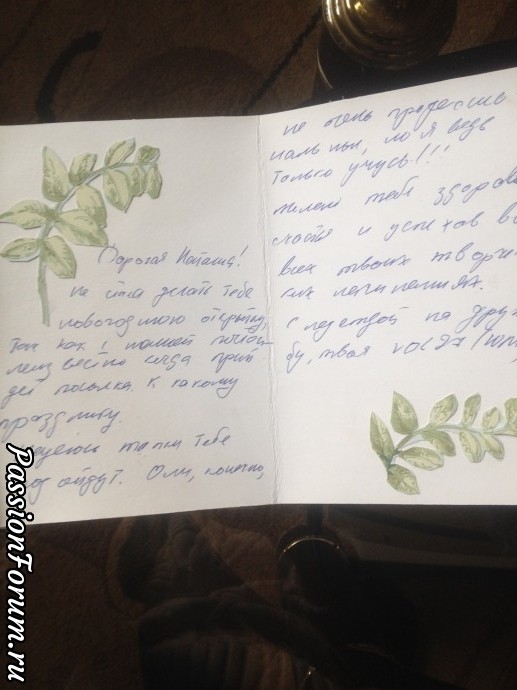 Дорогая Наташа!
Не стала делать тебе
новогоднюю открытку,
так как с нашей почтой
неизвестно когда прий
дет посылка. К какому
празднику.
тапки тебе
подойдут. Они, конечно,
не очень професcио
нальны, но я ведь
только учусь!!!
Желаю тебе здоров
счастья и успехов во
всех твоих творче
ских начинаниях.
С надеждой на друж
бу, твоя
PassionForum.ru